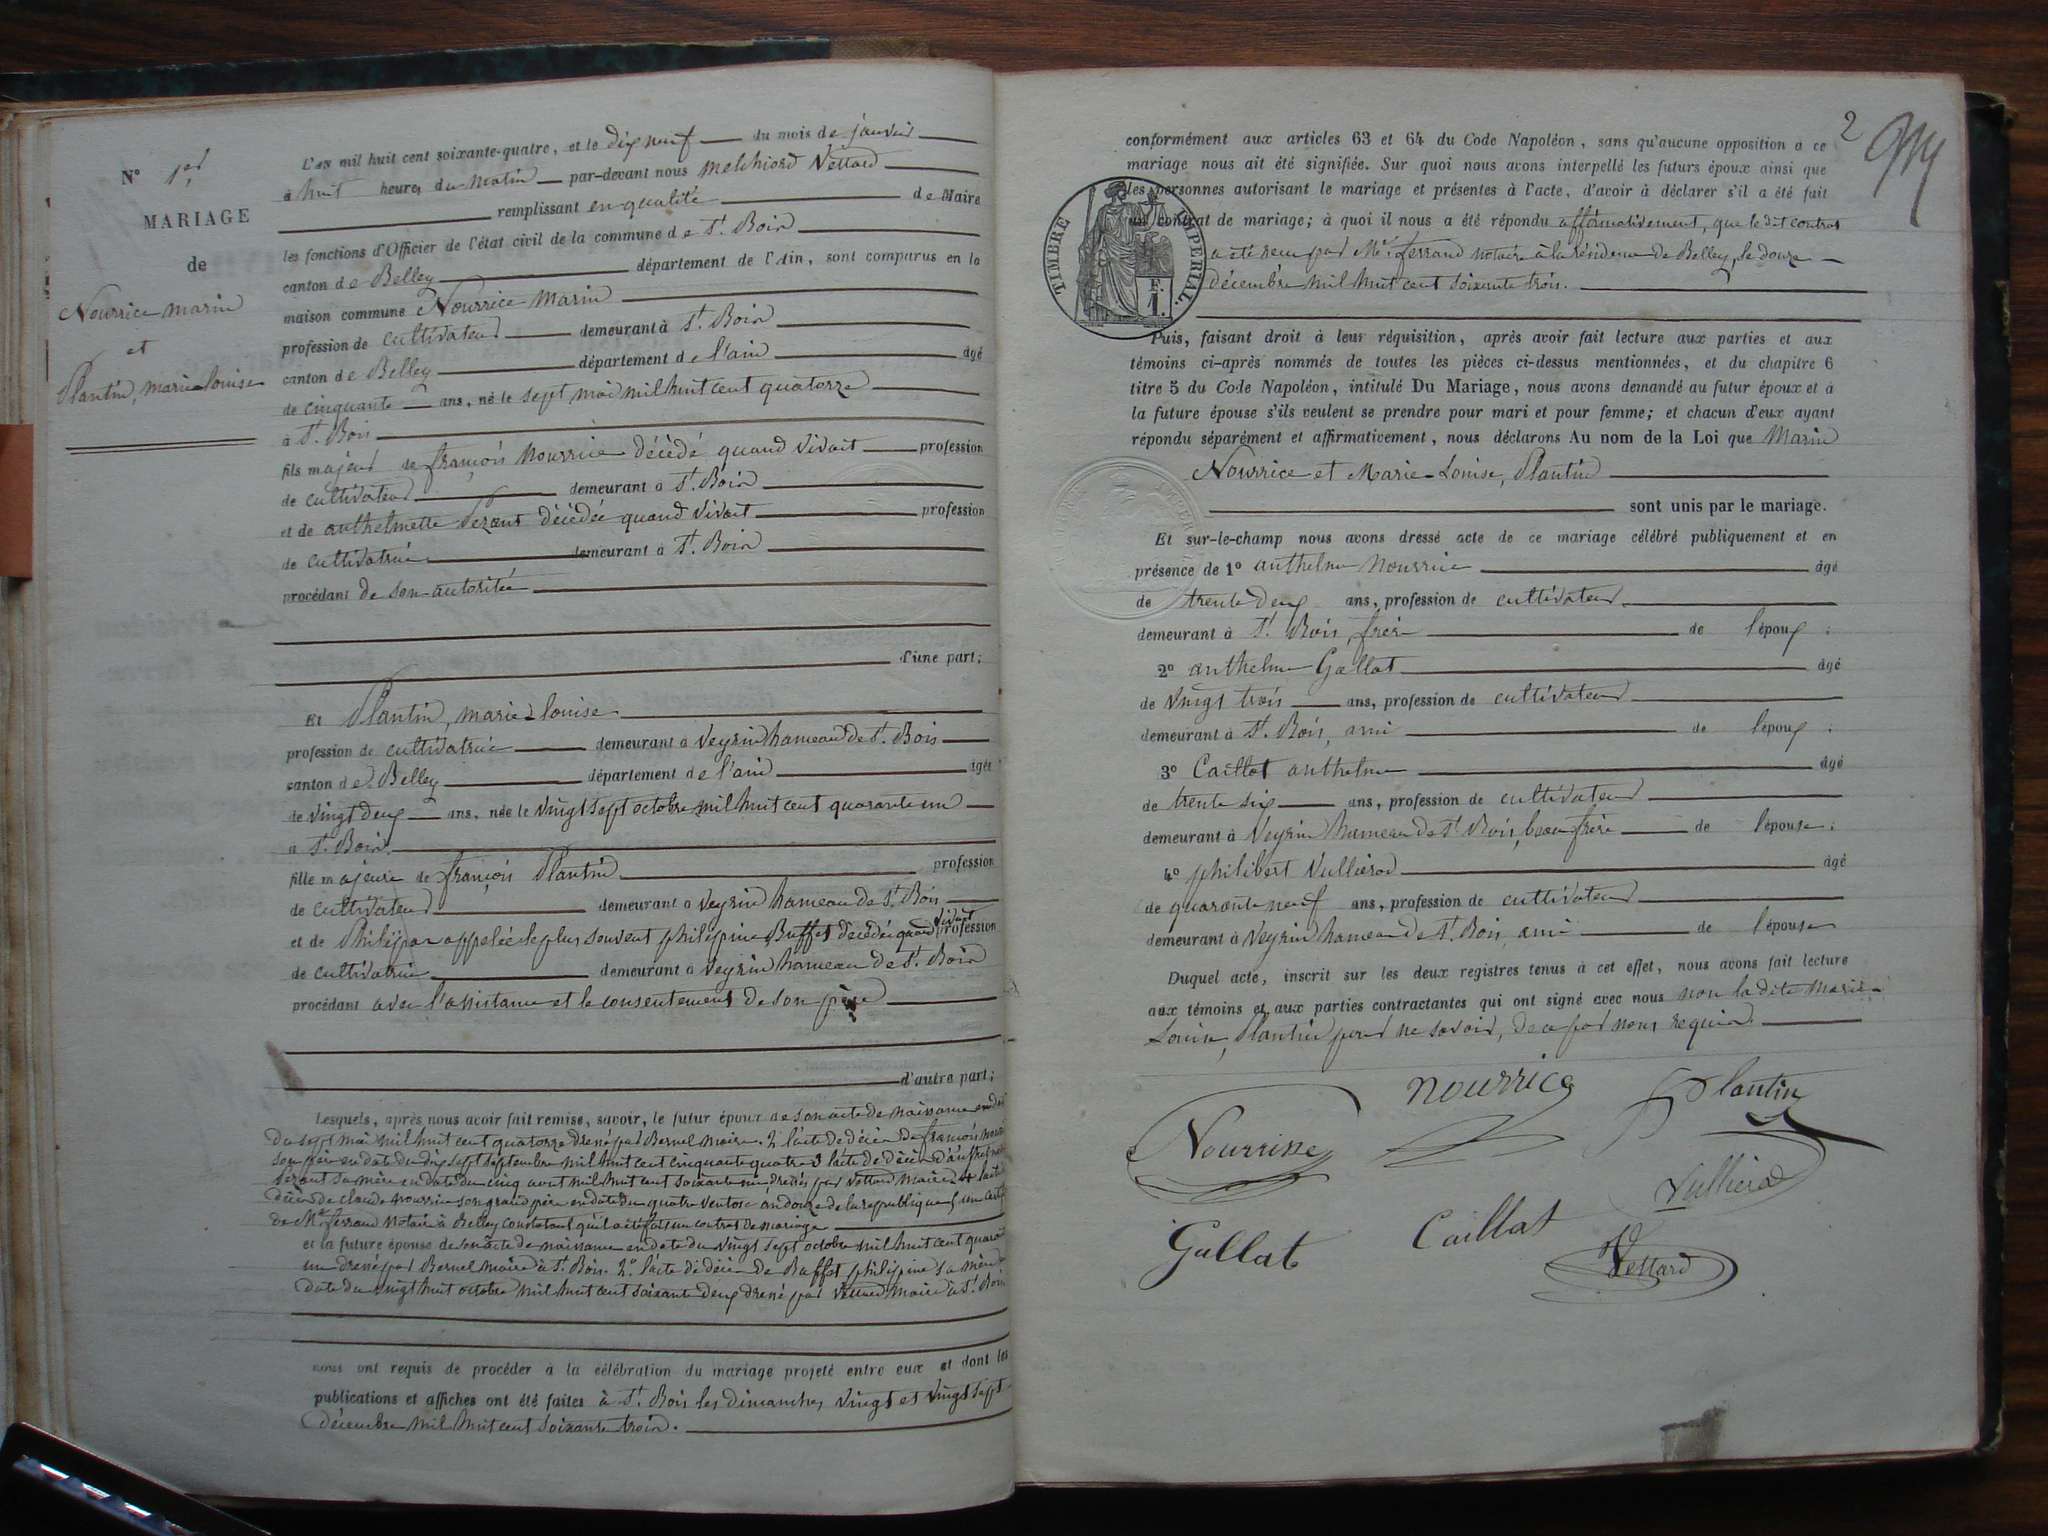 N° 1er
MARIAGE
de
Nourrice marin
et
Plantin, marie-louise
L'an mil huit cent soixante-quatre, et le dix neuf du mois de janvier
à huit heures du Matin par-devant nous Melchiord Vettard
remplissant en qualité de Maire
les fonctions d'Officier de l'état civil de la commune de St. Bois
canton de Belley département de l'Ain, sont comparus en la
maison commune Nourrice Marin
profession de cultivateur demeurant à St. Bois
canton de Belley département de l'ain âgé
de cinquante ans, né le sept mai mil huit cent quatorze
à St. Bois
fils majeur de françois Nourrice décédé quand vivait profession
de cultivateur demeurant à St. Bois
et de anthelmette décédée quand vivait profession
de cultivatrice demeurant à St. Bois
procédant de son autorité
d'une part;
Et Plantin, marie-louise
profession de cultivatrice demeurant à Veyrin hameau de St. Bois
canton de Belley département de l'ain âgée
de vingt deux ans, née le vingt sept octobre mil huit cent quarante un
à St. Bois.
fille majeure de françois Plantin profession
de cultivateur demeurant à Veyrin hameau de St. Bois
et de appelée le plus souvent philippine Buffet décédée quand vivait profession
de cultivatrice demeurant à Veyrin hameau de St. Bois
procédant avec l'assistance et le consentement de son père
d'autre part;
Lesquels, après nous avoir fait remise, savoir, le futur époux de son acte de naissance en date
du sept mai mil huit cent quatorze dressé par Bernel maire. 2 l'acte de décès de françois
son père en date du dix sept septembre mil huit cent cinquante quatre 3 l'acte de décès d'
sa mère en date du cinq aout mil huit cent soixante un dressés par Vettard maire 4 l'acte
décès de claude nourrice son grand père en date du quatre ventose an douze de la republique 5 un
de Me. ferrand Notaire à Belley constatant qu'il a été fait un contrat de mariage
et la future épouse de son acte de naissance en date du vingt sept octobre mil huit cent quarante
un dressé par Bernel maire à St. Bois. 2° l'acte de décès de Buffet philippine sa mère en
date du vingt huit octobre mil huit cent soixante deux dressé par Vettard maire à St. Bois
nous ont requis de procéder à la célébration du mariage projeté entre eux et dont les
publications et affiches ont été faites à St. Bois les dimanches vingt et vingt sept
décembre mil huit cent soixante trois.
2
conformément aux articles 63 et 64 du Code Napoléon, sans qu'aucune opposition à ce
mariage nous ait été signifiée. Sur quoi nous avons interpellé les futurs époux ainsi que
les personnes autorisant le mariage et présentes à l'acte, d'avoir à déclarer s'il a été fait
un contrat de mariage; à quoi il nous a été répondu affirmativement, que le dit contrat
a été reçu par Me. ferrand notaire à la résidence de Belley, le douze
décembre mil huit cent soixante trois.
TIMBRE IMPERIAL.
F.
1.
Puis, faisant droit à leur réquisition, après avoir fait lecture aux parties et aux
témoins ci-après nommés de toutes les pièces ci-dessus mentionnées, et du chapitre 6
titre 5 du Code Napoléon, intitulé Du Mariage, nous avons demandé au futur époux et à
la future épouse s'ils veulent se prendre pour mari et pour femme; et chacun d'eux ayant
répondu séparément et affirmativement, nous déclarons Au nom de la Loi que Marin
Nourrice et Marie-Louise, Plantin
sont unis par le mariage.
Et sur-le-champ nous avons dressé acte de ce mariage célébré publiquement et en
présence de 1° anthelme Nourrice âgé
de trente deux ans, profession de cultivateur
demeurant à St. Bois, frère de l'époux;
2° anthelme Gallat âgé
de vingt trois ans, profession de cultivateur
demeurant à St. Bois, ami de l'époux;
3° Caillat anthelme âgé
de trente six ans, profession de cultivateur
demeurant à Veyrin hameau de St. Bois, beau frère de l'épouse;
4° philibert Vulliérod âgé
de quarante neuf ans, profession de cultivateur
demeurant à Veyrin hameau de St. Bois, ami de l'épouse
Duquel acte, inscrit sur les deux registres tenus à cet effet, nous avons fait lecture
aux témoins et aux parties contractantes qui ont signé avec nous non la dite Marie-
Louise, Plantin pour ne savoir, de ce par nous requise.
nourrice Plantin
Nourrisse
Vulliérod
Gallat Caillat
Vettard